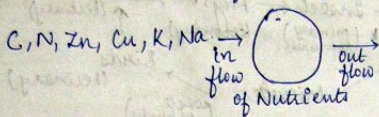 C, N, Zn, Cu, K, Na
in
flow
out
flow
of Nutrients